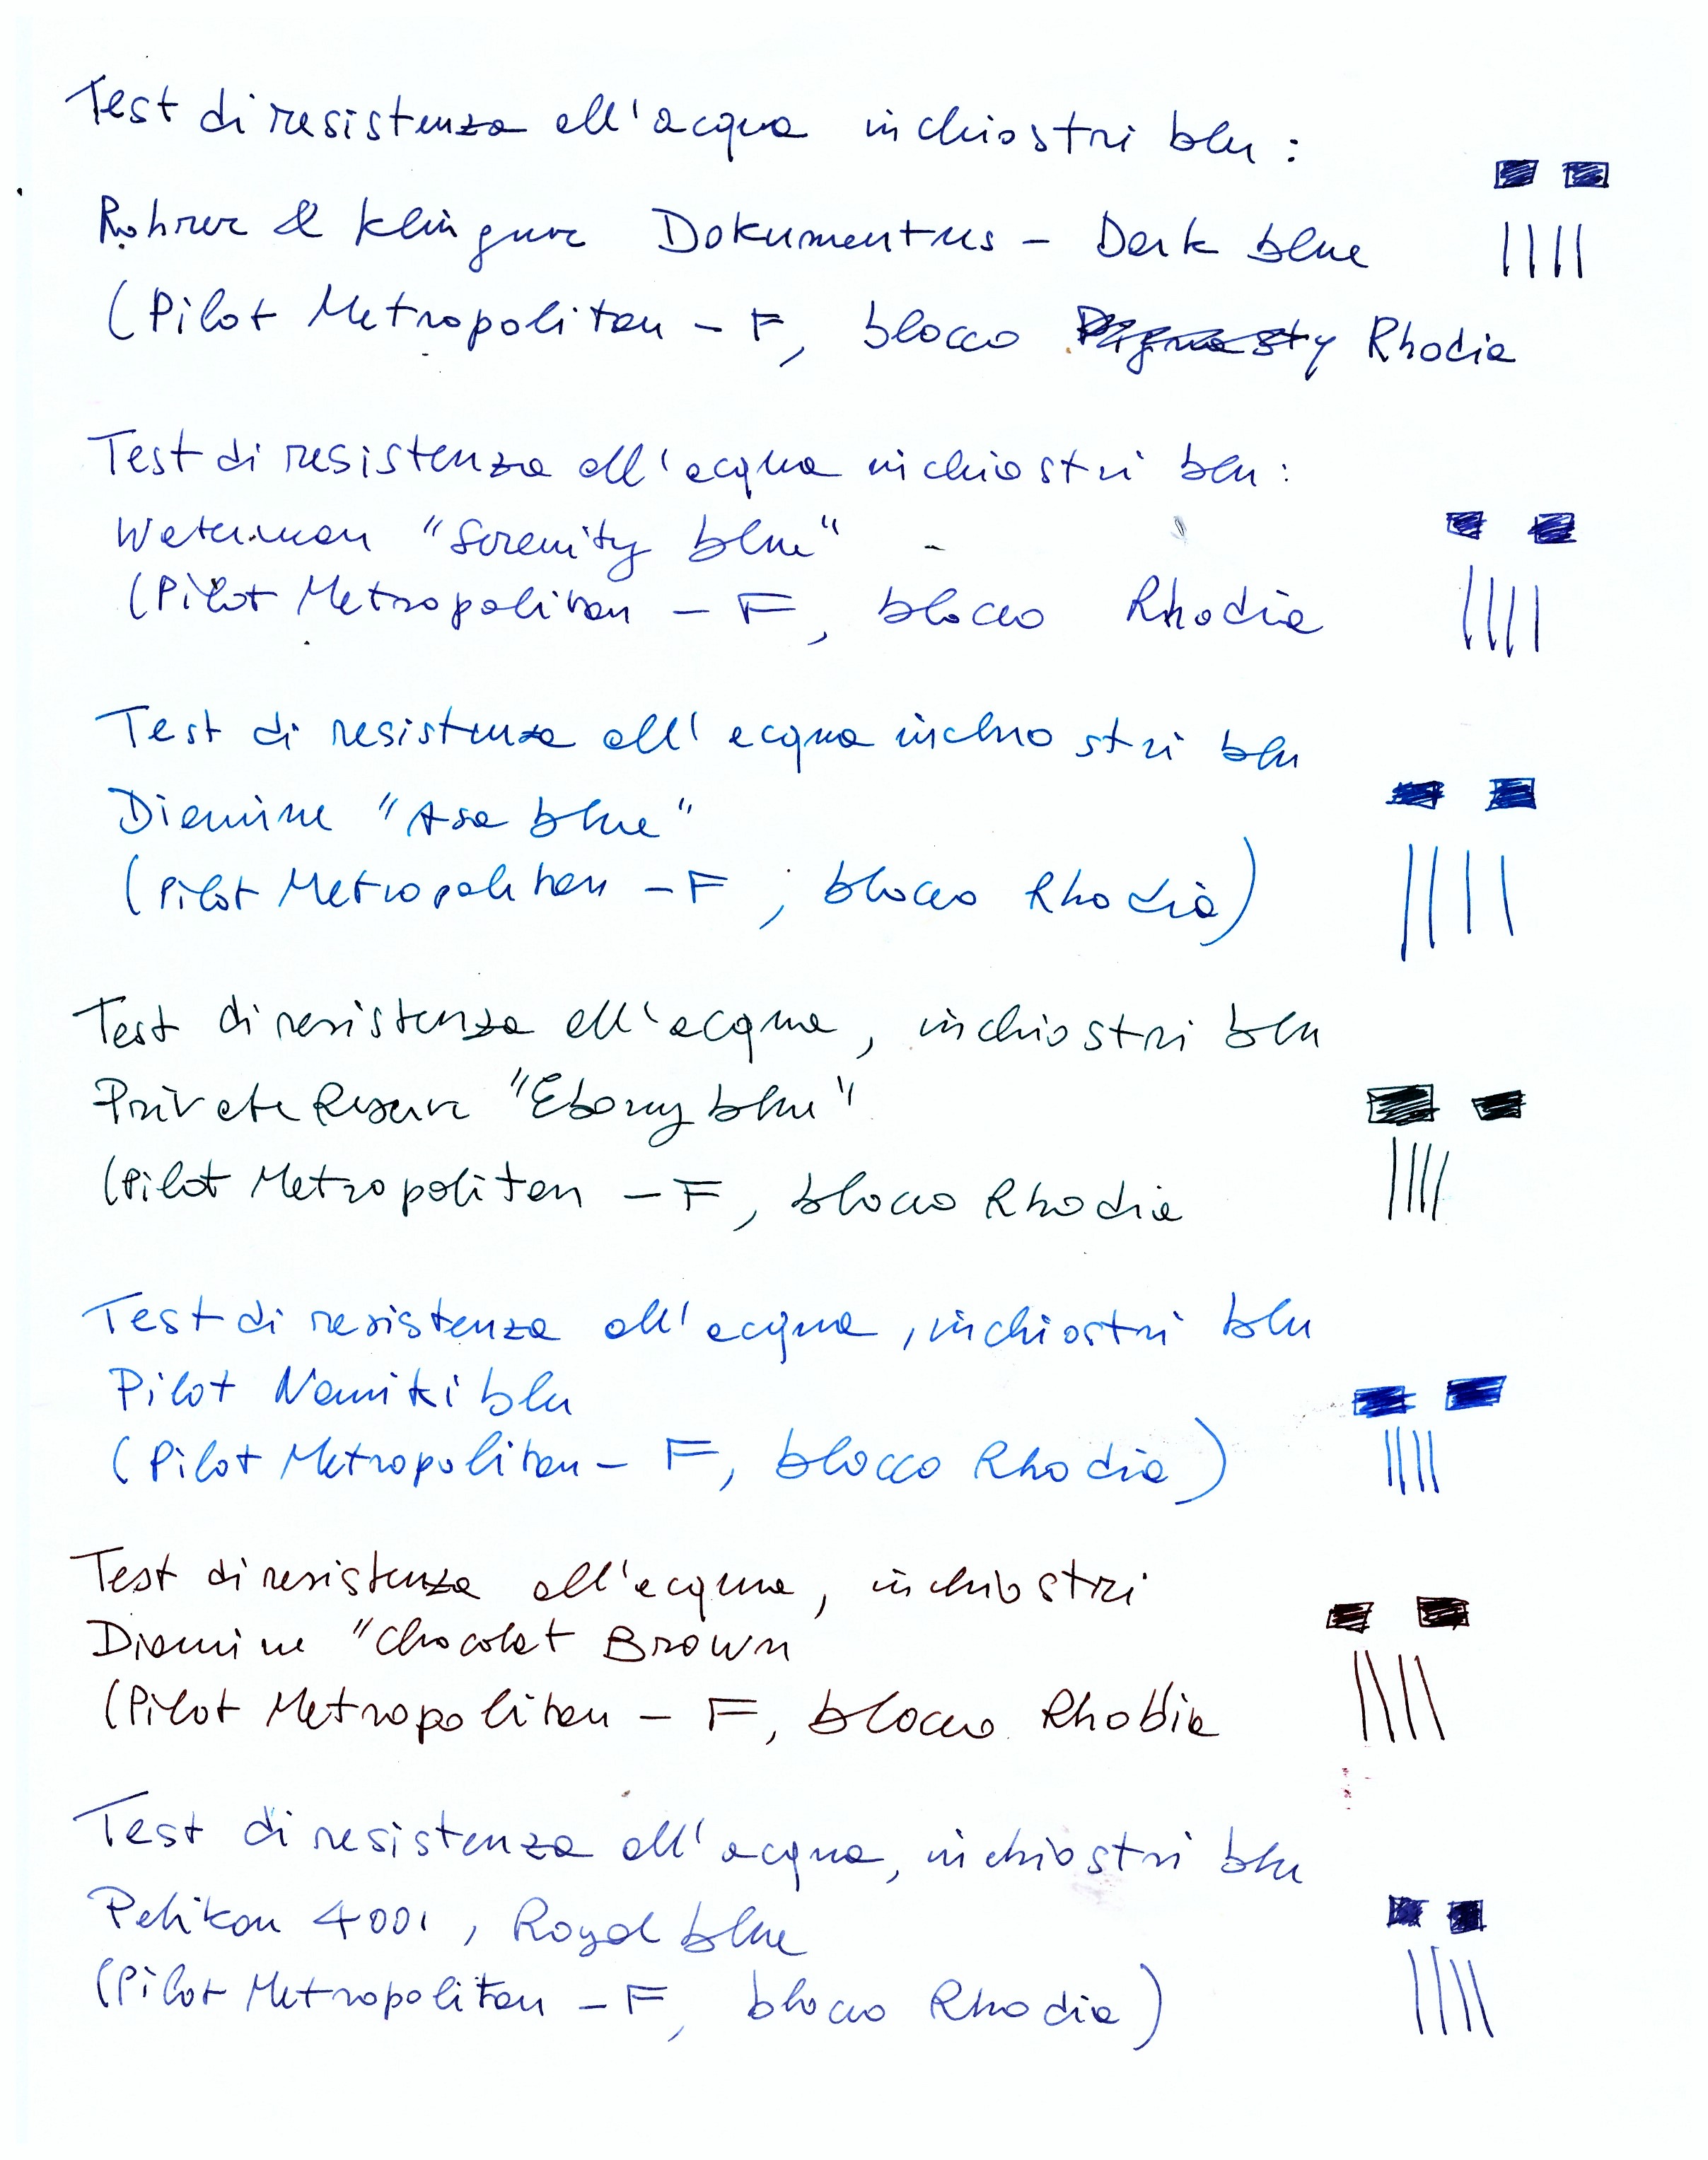 Test di resistenza all'acqua inchiostri blu:
Rohrer & Klingner Dokumentus - Dark blue
(Pilot Metropolitan - F, blocco Rhodia
Test di resistenza all'acqua inchiostri blu:
Waterman "Serenity blue" -
(Pilot Metropolitan - F, blocco Rhodia
Test di resistenza all'acqua inchiostri blu
Diamine "Asa blue"
(Pilot Metropolitan - F, blocco Rhodia)
Test di resistenza all'acqua, inchiostri blu
Private Reserve "Ebony blue"
(Pilot Metropolitan - F, blocco Rhodia
Test di resistenza all'acqua, inchiostri blu
Pilot Namiki blu
(Pilot Metropolitan - F, blocco Rhodia)
Test di resistenza all'acqua, inchiostri
Diamine "Chocolat Brown
(Pilot Metropolitan - F, blocco Rhodia
Test di resistenza all'acqua, inchiostri blu
Pelikan 4001, Royal blue
(Pilot Metropolitan - F, blocco Rhodia)